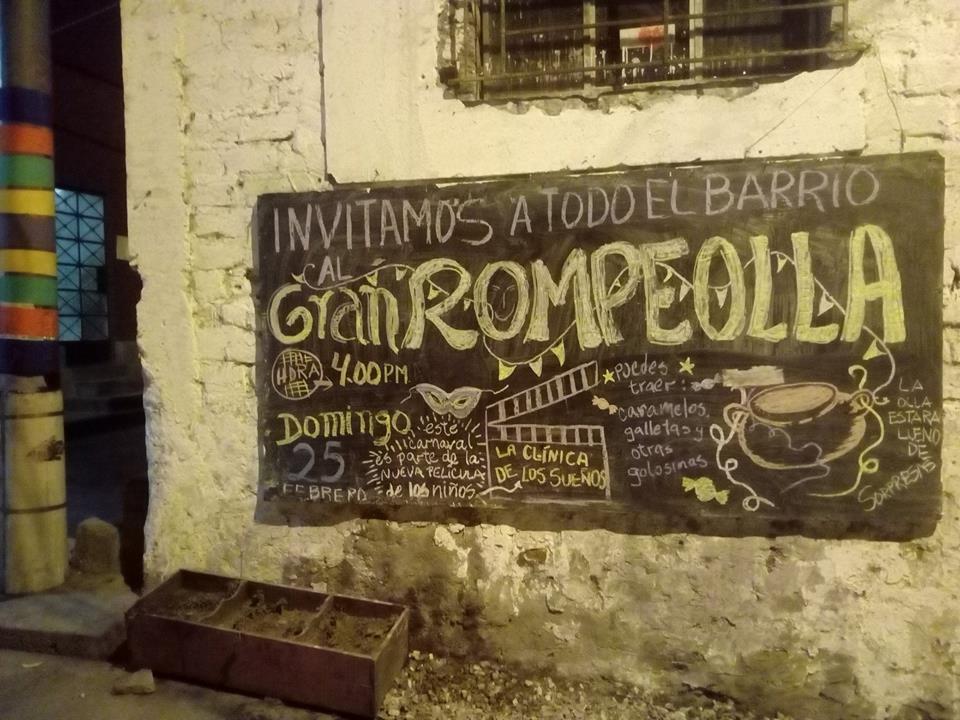 INVITAMOS A TODO EL BARRIO
CAL
Gran ROMPEOLLA
HORA 4.00 PM
DOMINGO
25
FEBRERO
este
carnaval
es parte de la
NUEVA PELÍCULA
de los niños
LA CLÍNICA
DE LOS SUEÑOS
puedes
traer:
caramelos,
galletas y
otras
golosinas
LA
OLLA
ESTARA
LLENO
DE
SORPRESAS